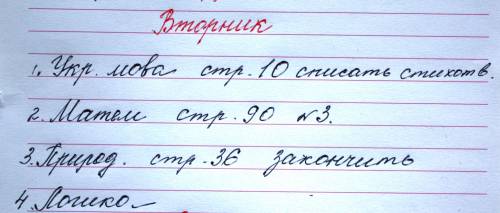 Вторник
1. Укр. мова стр. 10 списать стихотв.
2. Матем стр. 90 №3.
3. Природ. стр. 36 закончить
4. Логика